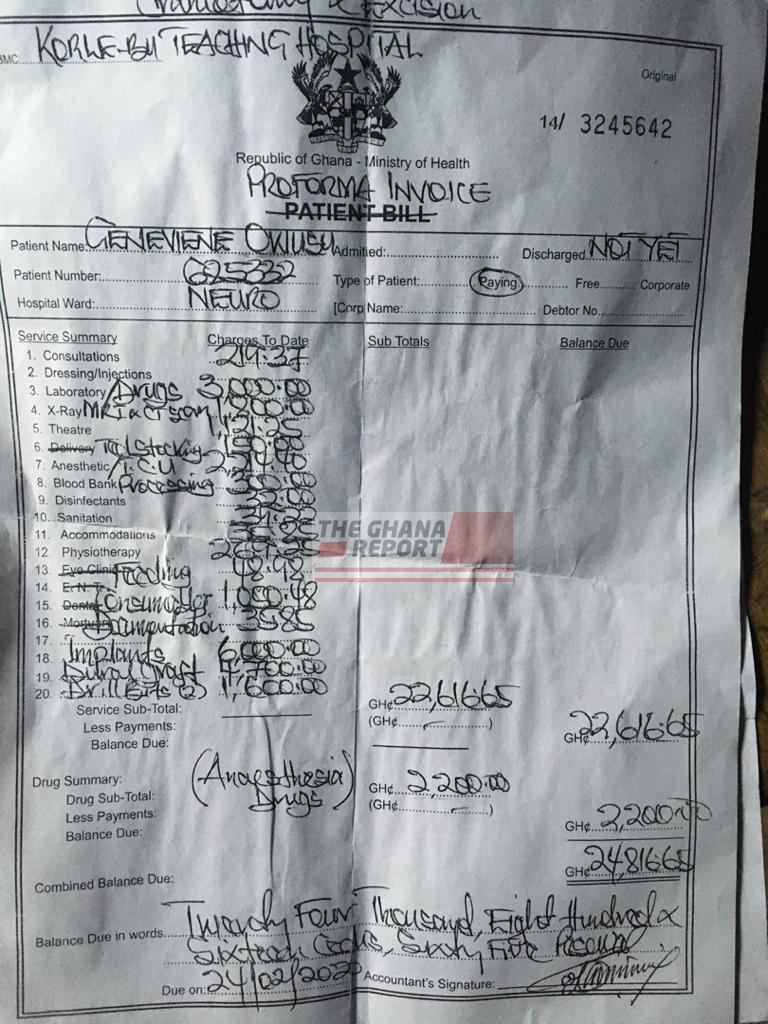 & Excision
BMC. KORLE-BU TEACHING HOSPITAL
Original
14/ 3245642
Republic of Ghana - Ministry of Health
PROFORMA INVOICE
PATIENT BILL
Patient Name: GENEVIENE Admitted: Discharged NOT YET
Patient Number: 625332 Type of Patient: Paying Free Corporate
Hospital Ward: NEURO [Corp Name: Debtor No.
Service Summary Charges To Date Sub Totals Balance Due
1. Consultations 219.37
2. Dressing/Injections
3. Laboratory /Drugs 3,000.00
4. X-Ray MRI & CT scan 1,800.00
5. Theatre
6. Delivery Ted Stocking
7. Anesthetic /I.C.U
8. Blood Bank Processing 300.00
9. Disinfectants
10. Sanitation
11. Accommodations
12. Physiotherapy
13. Eye Clinic Feeding 48.48
14. E.N.T.
15. Dental Consumables
16. Documentation 35.85
17.
18. Implants 6,000.00
19. Dural Graft
20. Drill Bits (2) 1,600.00
THE GHANA
REPORT
Service Sub-Total: GH¢ 22,616.65
Less Payments: (GH¢ )
Balance Due: GH¢ 22,616.65
Drug Summary: (Anaesthesia
Drugs)
Drug Sub-Total: GH¢ 2,200.00
Less Payments: (GH¢ )
Balance Due: GH¢ 2,200.00
Combined Balance Due: GH¢ 24,816.65
Balance Due in words Twenty Four Thousand, Eight Hundred &
Sixteen Cedis, Sixty Five Pesewas
Due on: 24/02/2020 Accountant's Signature: